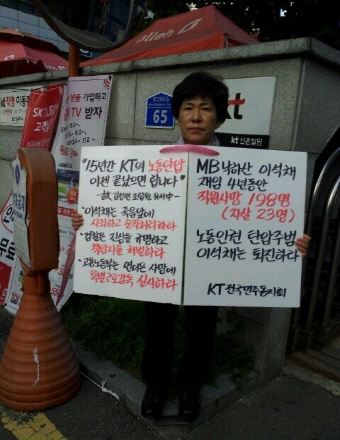 olleh
65
kt
kt 신관빌딩
SK
고객
가입하고
TV 받자
"15년간 KT의 노동탄압
이젠 끝났으면 합니다"
· 이석채는 죽음앞에
사죄하고 순직처리하라
· 검찰은 진실을 규명하고
책임자를 처벌하라
· 고용노동부는 연이은 사망에
특별근로감독 실시하라
MB낙하산 이석채
재임 4년동안
직원사망 198명
(자살 23명)
노동인권 탄압주범
이석채는 퇴진하라
KT 전국민주동지회